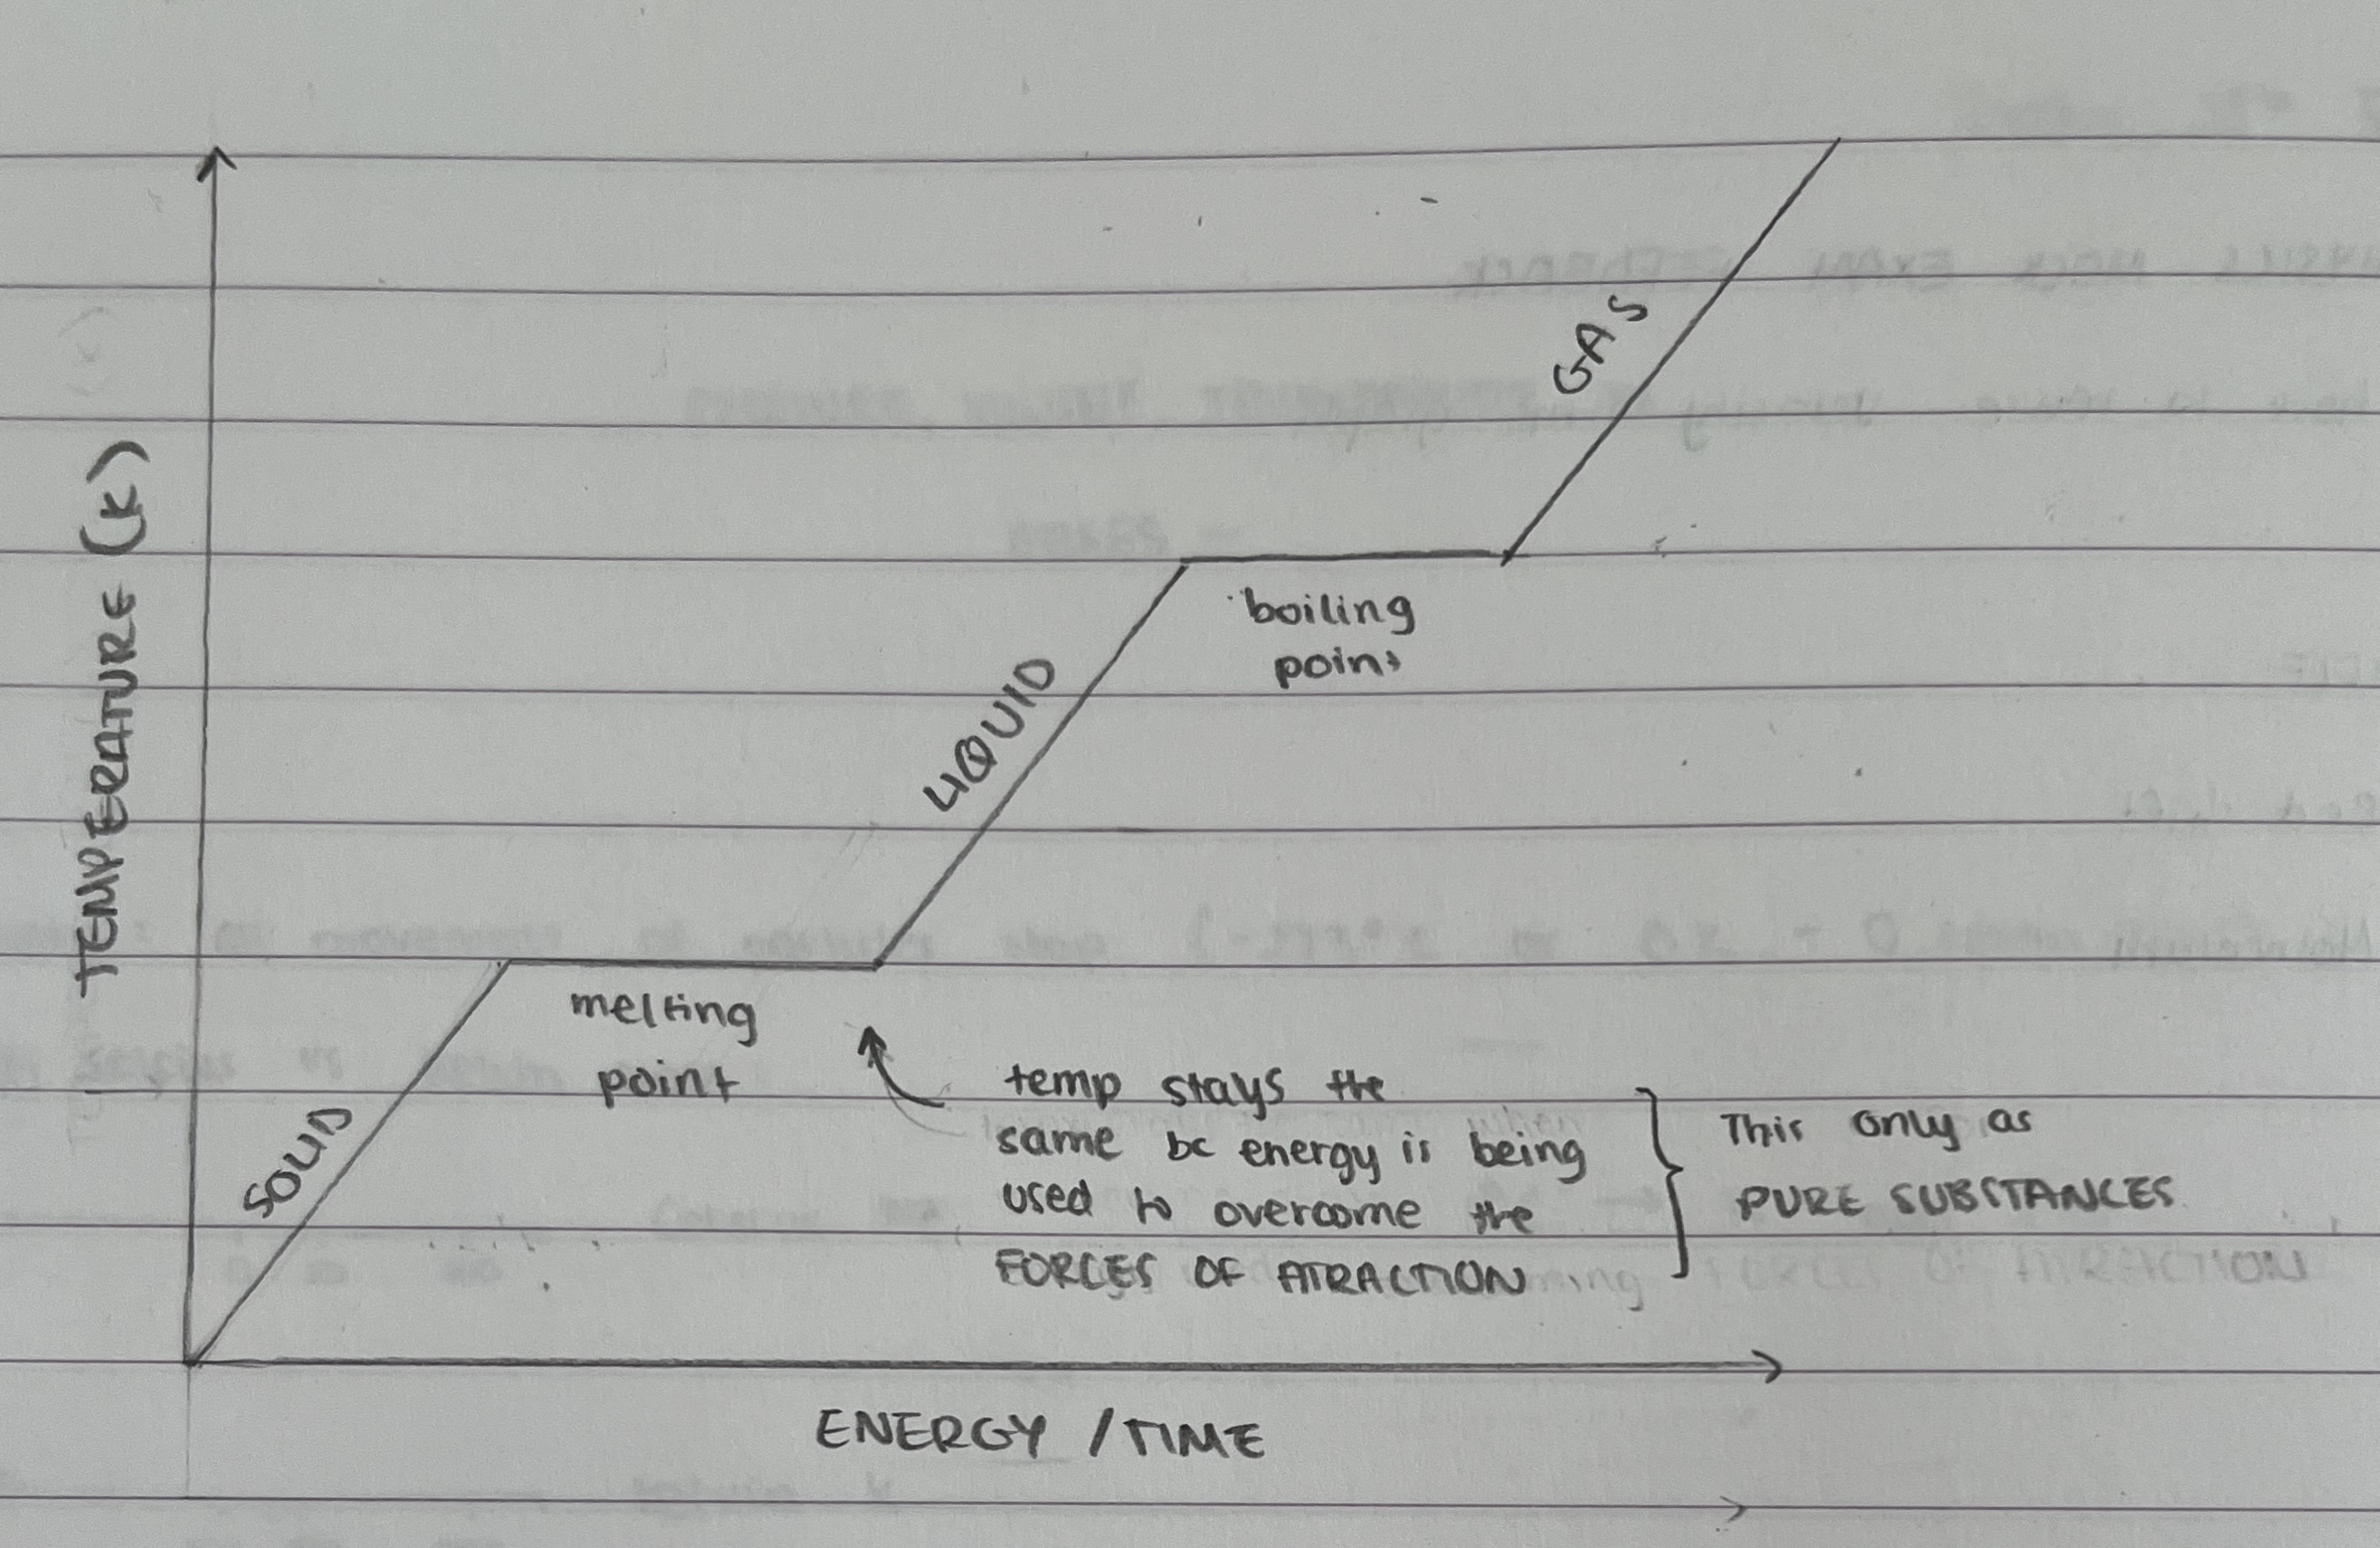 TEMPERATURE (K)
GAS
boiling
point
LIQUID
melting
point
SOLID
temp stays the
same bc energy is being
used to overcome the
FORCES OF ATRACTION
This only as
PURE SUBSTANCES
ENERGY / TIME